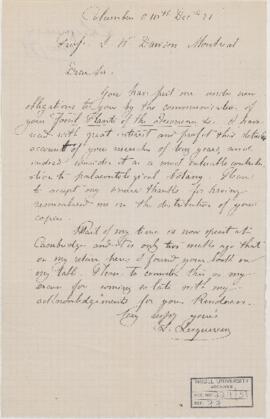 Columbus O 10th Dec 71
Prof. J W Dawson Montreal
Dear Sir.
You have put me under new
obligations to you by the communication of
your Fossil Plants of the Devonian &c. I have
read with great interest and profit this
account of your researches of long years, and
indeed consider it as a most valuable contribu-
tion to palaeontological botany. Please
to accept my sincere thanks for having
remembered me in the distribution of your
copies.
Most of my time is now spent at
Cambridge and it is only two weeks ago that
on my return here I found your book on
my table. Please to consider this as my
excuse for coming so late with my
acknowledgements for your kindness.
Very truly yours
L. Lesquereux
McGILL UNIVERSITY
ARCHIVES
ACC. NO.
REF.